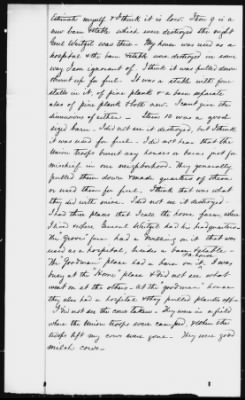 estimate myself & think it is low. Item 9 is a
new barn stable which was destroyed the night
Genl Weitzel was there. My house was used as a
hospital & the barn stable was destroyed in some
way I am ignorant of. I think it was pulled down
& burnt up for fuel. It was a stable with four
stalls in it, of pine plank & a barn separate
also of pine plank & both new. I cant give the
dimensions of either. Item 10 was a good
sized barn. I did not see it destroyed, but think
it was used for fuel. I did not hear that the
Union troops burnt any houses or barns just for
mischief in our neighborhood. They generally
pulled them down & made quarters of them
or used them for fuel. I think that was what
they did with ours. I did not see it destroyed.
I had three places that I call the home farm where
I lived where General Weitzel had his headquarters
the "grove" farm had a building on it that was
used as a hospital, besides a barn & stable
The "Goodman" place had a barn & house on it. I was
busy at the "Home" place & did not see what
went on at the others. At the "goodman" house
they also had a hospital & they pulled planks off
I did not see the cows taken. They were in a field
where the Union troops were camped, & when the
troops left my cows were gone. They were good
milch cows.